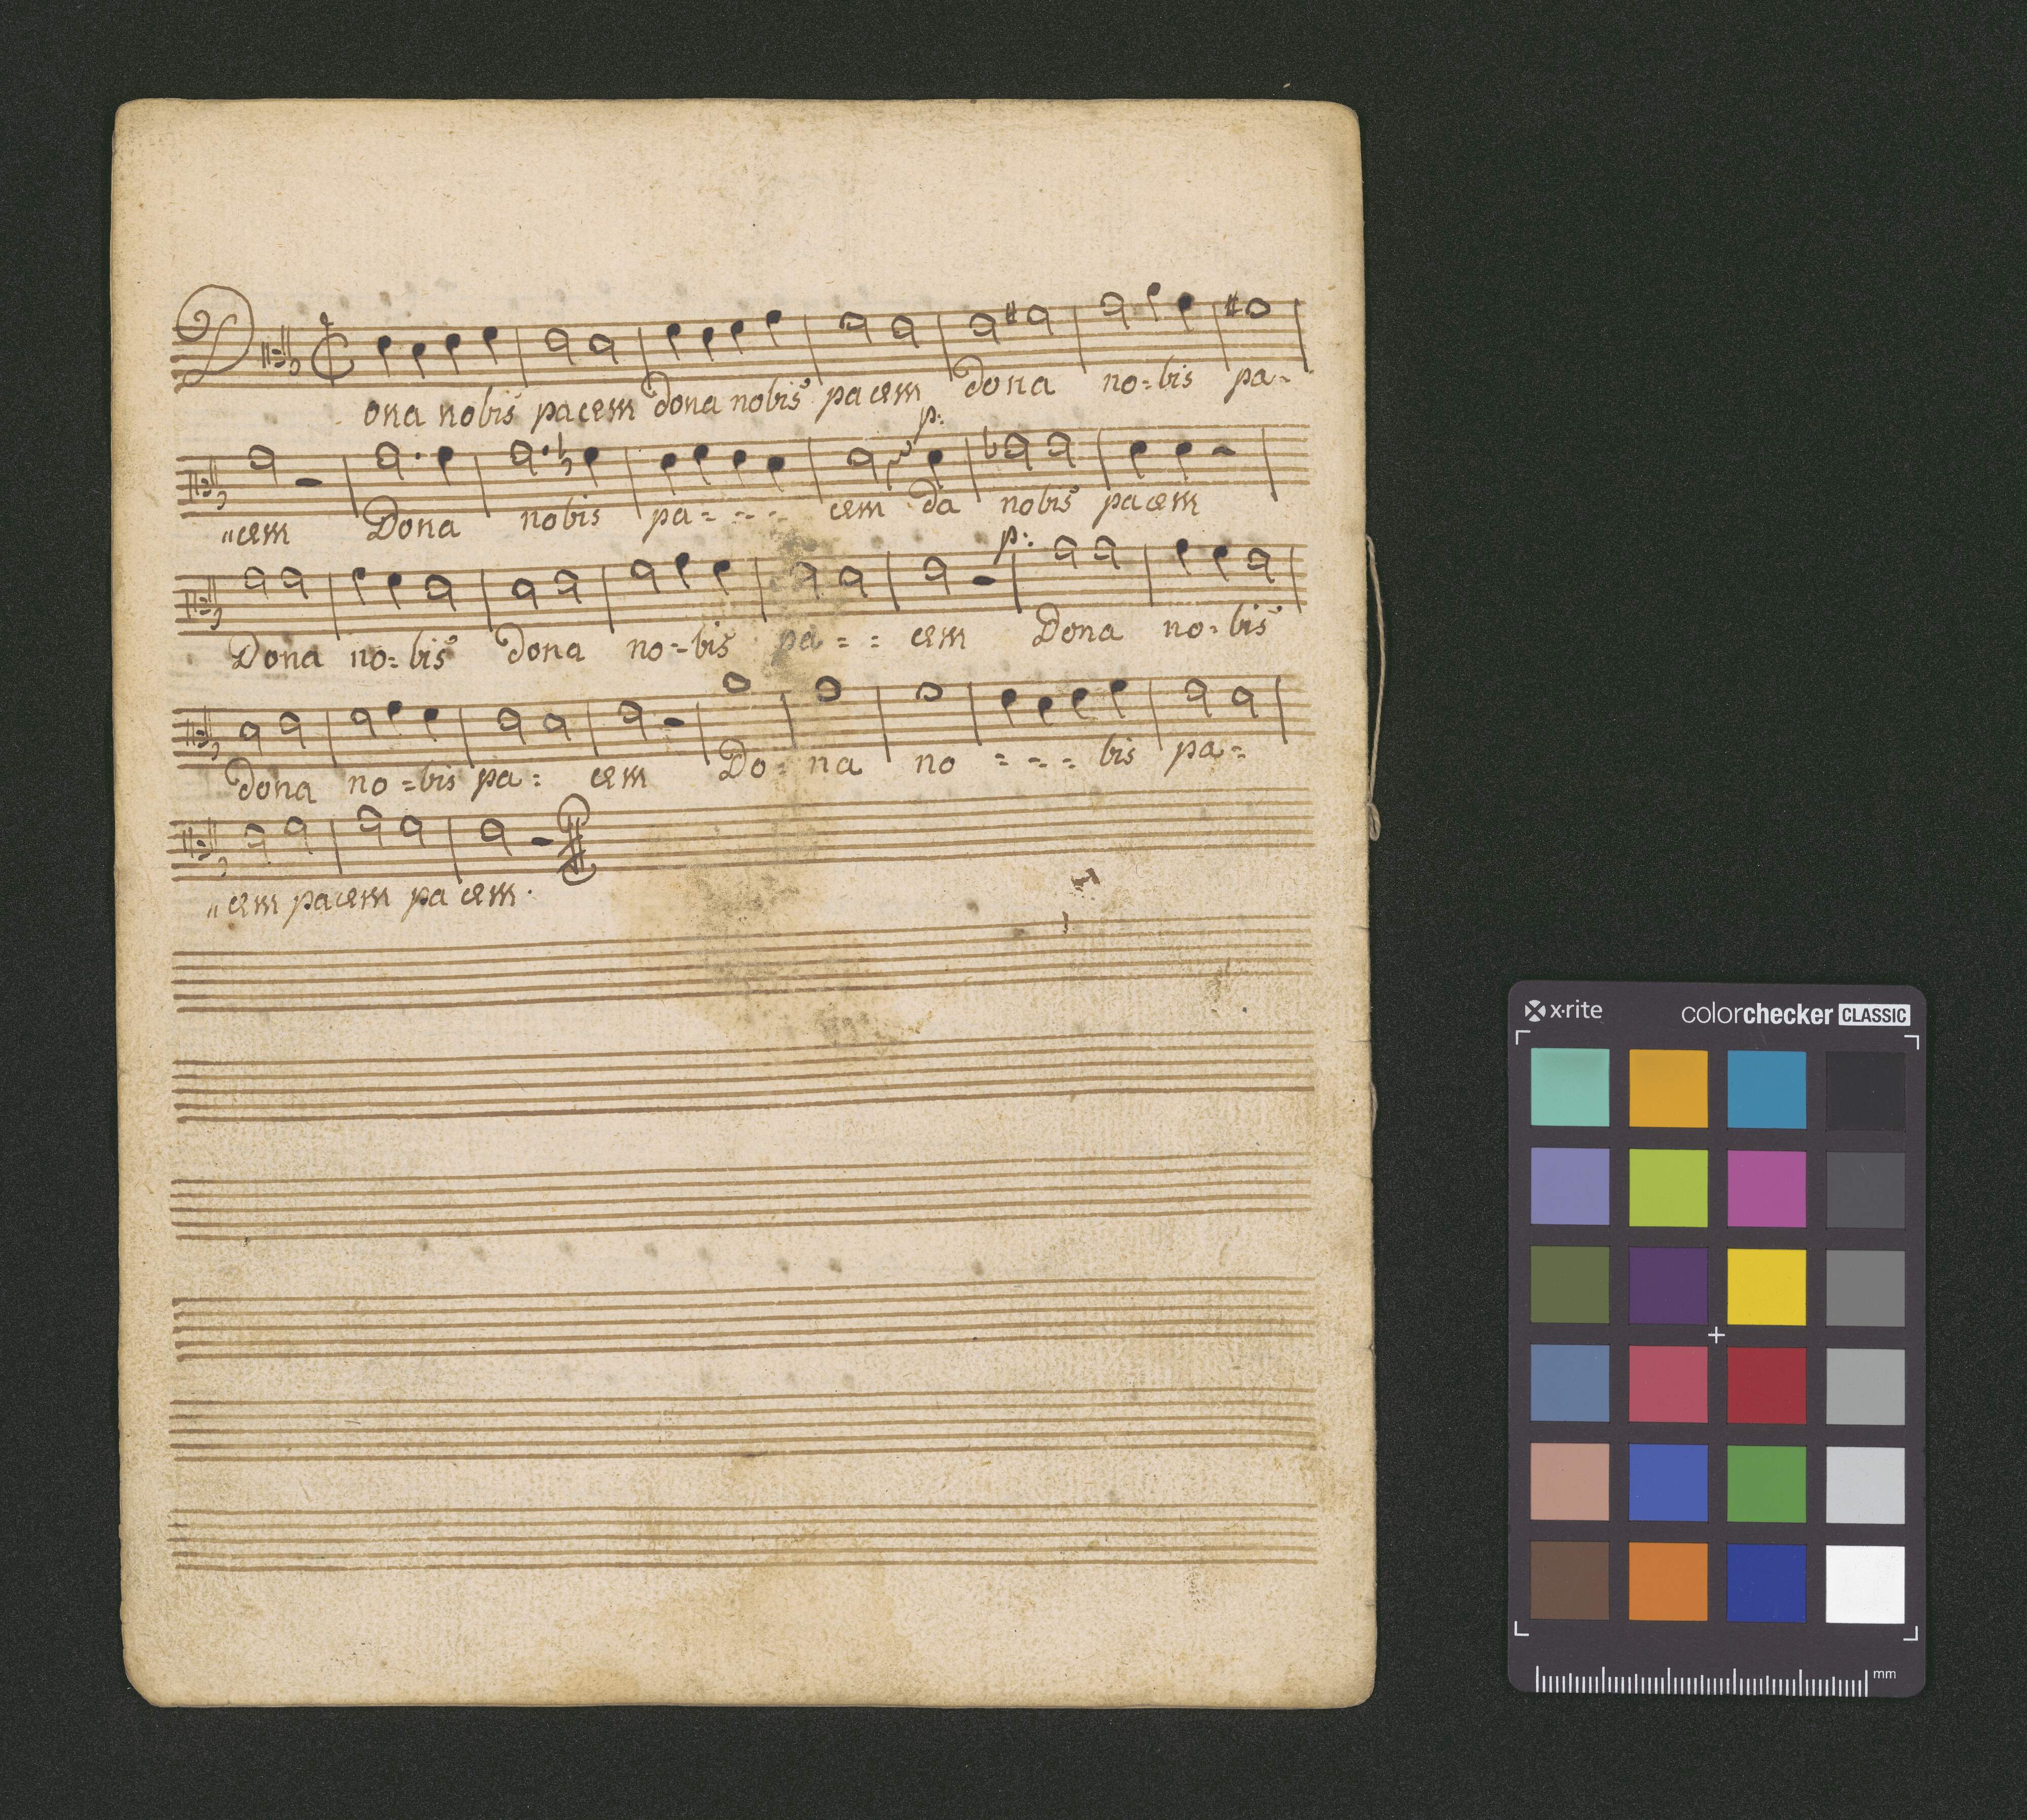 Dona nobis pacem dona nobis pacem dona no=bis pa-
p:
"cem Dona nobis pa=--- cem da nobis pacem
p:
Dona no=bis dona no=bis pa== cem Dona no=bis
dona no=bis pa= cem Do=na no=--= bis pa=
"cem pacem pacem.
x·rite colorchecker CLASSIC
mm